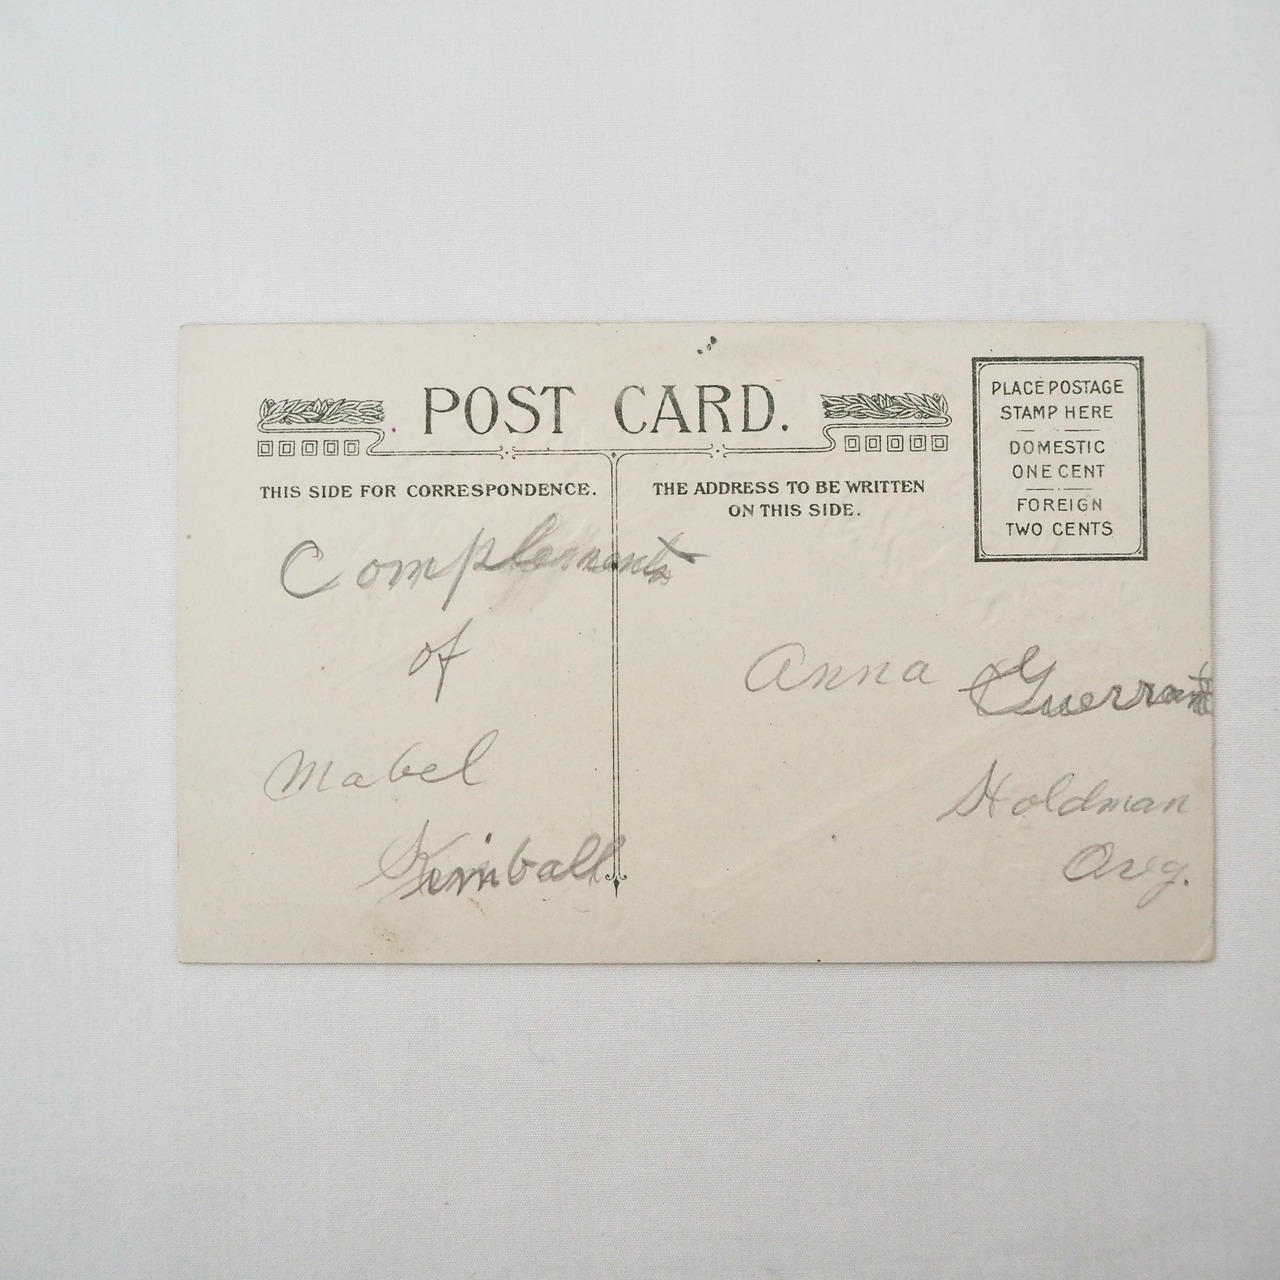 POST CARD.
THIS SIDE FOR CORRESPONDENCE.
Complements
of
Mabel
Kimball
THE ADDRESS TO BE WRITTEN
ON THIS SIDE.
PLACE POSTAGE
STAMP HERE
DOMESTIC
ONE CENT
FOREIGN
TWO CENTS
Anna Guerrant
Holdman
Oreg.